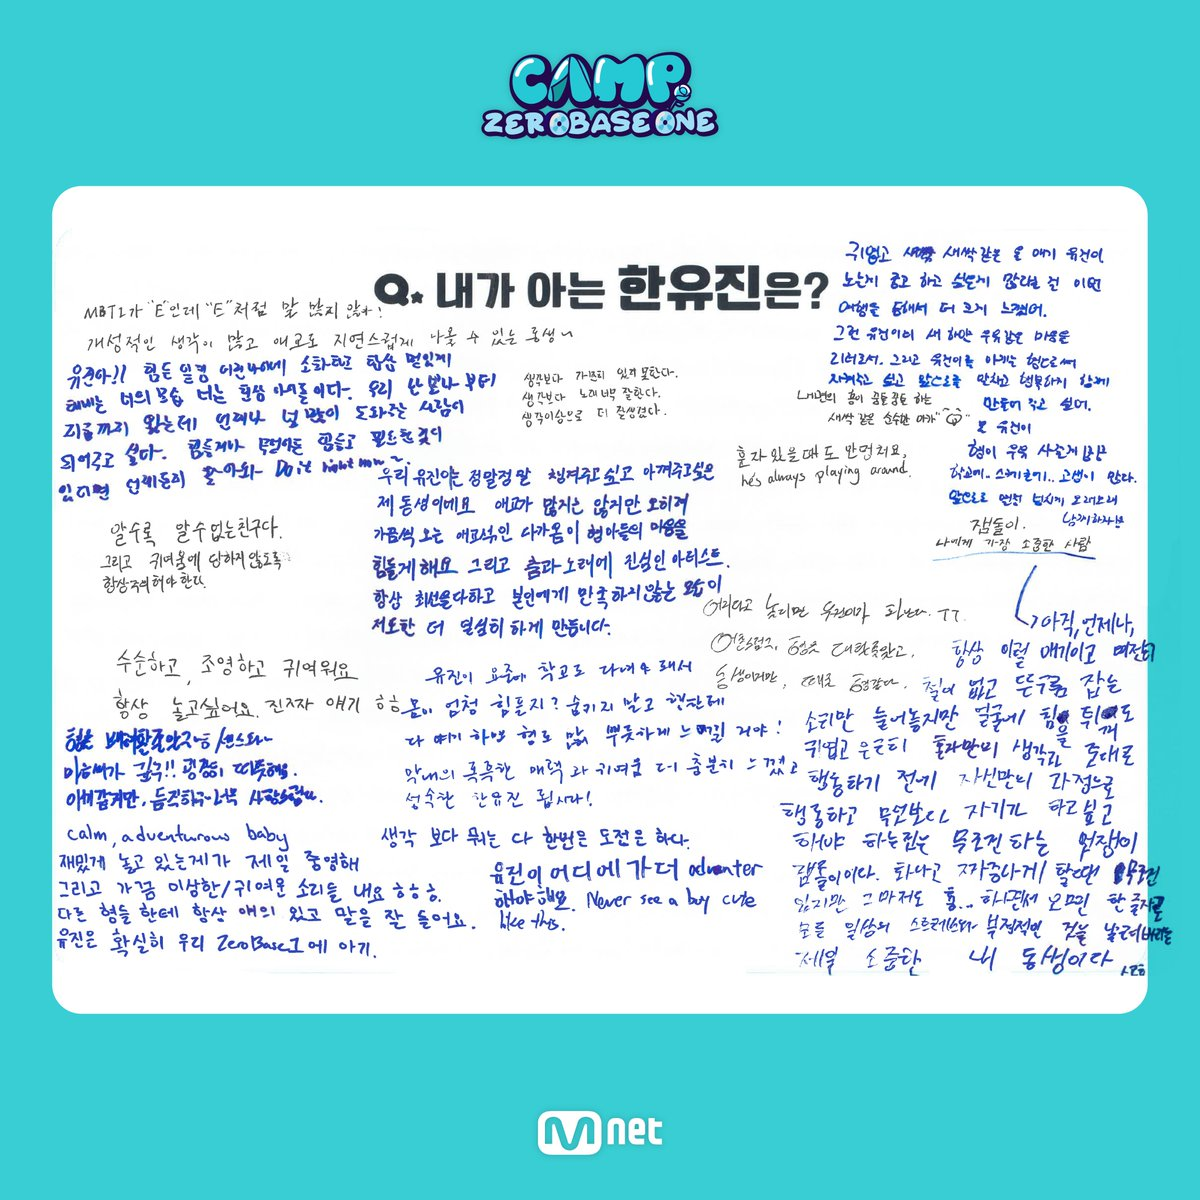 CAMP
ZEROBASEONE
Q. 내가 아는 한유진은?
MBTI가 "E"인데 "E"처럼 말 많지 않아!
개성적인 생각이 많고 애교로 자연스럽게 나올 수 있는 동생~
유진아!! 힘든 일정 어린나이에 소화하고
너의 모습 너는 아이돌이다. 우리
지금까지 왔는데 언제나 널 많이 도와주는 사람이
되어주고 싶다. 힘들거나 무엇이든 힘들고 필요한 것이
있다면 언제든지 찾아와 Do it right now~
생각보다 가끔씩 있지 못한다.
생각보다 노래 너무 잘한다.
생각이상으로 더 잘생겼다.
알수록 알수없는친구다.
그리고 귀여움에 당하지 않도록
항상주의해야 한다.
우리 유진이는 정말정말 챙겨주고 싶고 아껴주고싶은
제 동생이에요 애교가 많지는 않지만 오히려
가끔씩 오는 애교섞인 다가옴이 형아들의 마음을
힘들게해요 그리고 춤과 노래에 진심인 아티스트.
항상 최선을다하고 본인에게 만족하지않는 모습이
저또한 더 열심히 하게 만듭니다.
수순하고, 조영하고 귀여워요
항상 놀고싶어요. 진짜 얘기 ㅎㅎ
유진이 요즘에 학교도 다녀야 돼서
몸이 엄청 힘들지? 숨기지 말고 형한테
다 얘기 하면 형도 많이 뿌듯하게 느낄 거야!
막내의 톡톡한 매력과 귀여움 더 충분히 느꼈고
성숙한 한유진 됩시다!
calm, adventurous baby
재밌게 놀고 있는게가 제일 중영해
그리고 가끔 이상한/귀여운 소리들 내요 ㅎㅎㅎ.
다른 형들 한테 항상 얘의 있고 말을 잘 들어요.
유진은 확실히 우리 ZeroBase1에 아기.
생각 보다 뭐든 다 한번은 도전은 하다.
유진이 어디에 가더 adventer
하야 해요. Never see a boy cute
like this.
귀엽고 새싹같은 울 애기 유진이
노는게 좋고 하고 싶은게 많다는 걸 이번
여행을 통해서 더 크게 느꼈어.
그런 유진이의 새 하얀 우유같은 마음을
리더로서. 그리고 유진이를 아끼는 형으로써
지켜주고 싶고 앞으로를 만화고 행복하지 함께
만들어 주고 싶어.
내면의 흥이 꿈틀꿈틀 하는
새싹 같은 순수한 아가
형이 우육 사는게
학교에.. 스케줄에.. 고생이 많다.
앞으로도 오래오래
함께하자
혼자 있을때 도 안 멈춰요,
he's always playing around.
잼돌이.
나에게 가장 소중한 사람
어리다고 놀리면 유진이가 화난다. ㅜㅜ.
어른스럽지, 형은 대학을 갔고,
동생이지만, 때로 형같다.
아직, 언제나,
항상 이럴 애기이고 여전히
철이 없고 뜬구름 잡는
소리만 늘어놓지만 얼굴에 힘을
귀엽고 혼자만의 생각과
행동하기 전에 자신만의 과정으로
행동하고 무엇보다 자기가 하고싶고
해야 하는일은 무조건 하는 멋쟁이
잼돌이이다. 화나고 짜증나게 할때도
있지만 그마저도 흥...
일상의 스트레스와 부정적인 것을
제일 소중한 내 동생이다
Mnet